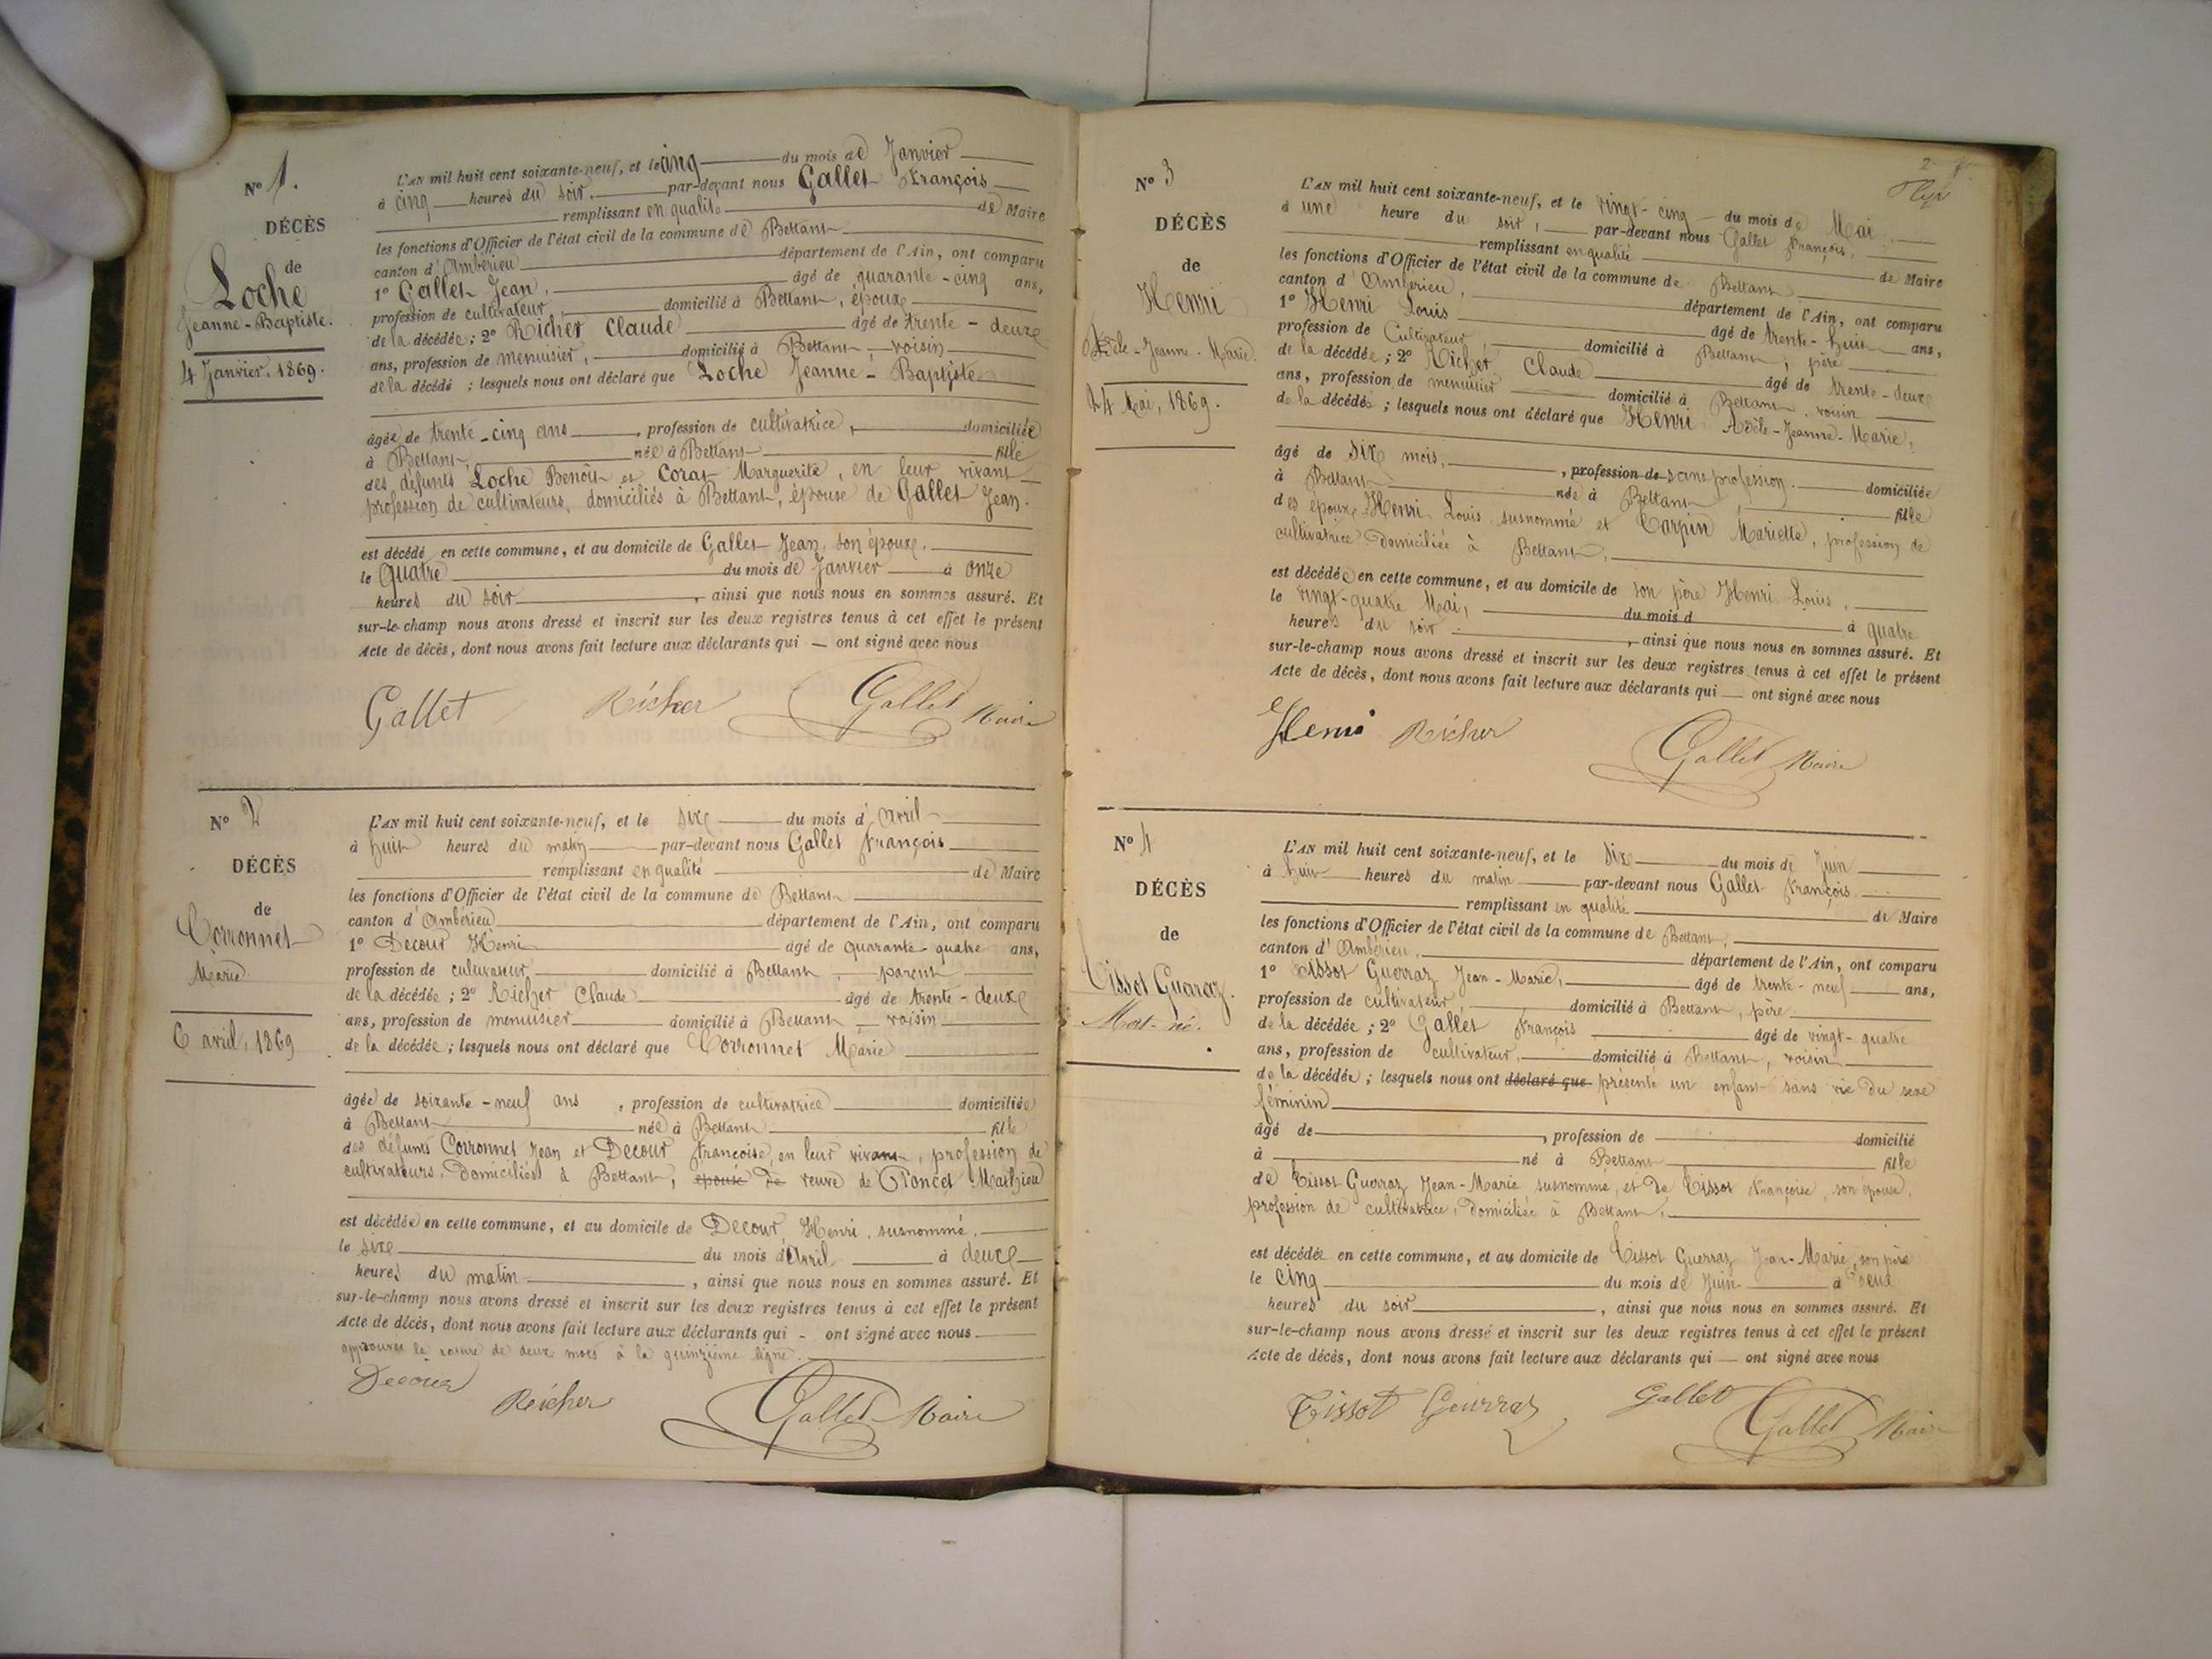 N° 1.
DÉCÈS
de
Loche
Jeanne-Baptiste.
4 Janvier, 1869.
L'AN mil huit cent soixante-neuf, et le cinq du mois de Janvier
à cinq heures du soir, par-devant nous Gallet François
remplissant en qualité de Maire
les fonctions d'Officier de l'état civil de la commune de Bettant
canton d'Ambérieu département de l'Ain, ont comparu
1° Gallet Jean, âgé de quarante-cinq ans,
profession de cultivateur, domicilié à Bettant, époux
de la décédée; 2° Richer Claude âgé de trente-deux
ans, profession de menuisier, domicilié à Bettant, voisin
de la décédé ; lesquels nous ont déclaré que Loche Jeanne-Baptiste
âgée de trente-cinq ans, profession de cultivatrice, domiciliée
à Bettant, née à Bettant fille
des défunts Loche Benoît et Corat Marguerite, en leur vivant
profession de cultivateurs, domiciliés à Bettant, épouse de Gallet Jean.
est décédé en cette commune, et au domicile de Gallet Jean, son époux,
le quatre du mois de Janvier à onze
heures du soir, ainsi que nous nous en sommes assuré. Et
sur-le-champ nous avons dressé et inscrit sur les deux registres tenus à cet effet le présent
Acte de décès, dont nous avons fait lecture aux déclarants qui — ont signé avec nous
Gallet Richer Gallet Maire
N° 2
DÉCÈS
de
Corronnet
Marie
6 avril, 1869
L'AN mil huit cent soixante-neuf, et le six du mois d'avril
à huit heures du matin par-devant nous Gallet François
remplissant en qualité de Maire
les fonctions d'Officier de l'état civil de la commune de Bettant
canton d'Ambérieu département de l'Ain, ont comparu
1° Decour Henri âgé de quarante-quatre ans,
profession de cultivateur, domicilié à Bettant, parent
de la décédée ; 2° Richer Claude âgé de trente-deux
ans, profession de menuisier domicilié à Bettant, voisin
de la décédée ; lesquels nous ont déclaré que Corronnet Marie
âgée de soixante-neuf ans, profession de cultivatrice domiciliée
à Bettant née à Bettant fille
des défunts Corronnet Jean et Decour Françoise, en leur vivant, profession de
cultivateurs, domiciliés à Bettant, épouse de veuve de Poncet Mathieu
est décédée en cette commune, et au domicile de Decour Henri, susnommé,
le six du mois d'Avril à deux
heures du matin, ainsi que nous nous en sommes assuré. Et
sur-le-champ nous avons dressé et inscrit sur les deux registres tenus à cet effet le présent
Acte de décès, dont nous avons fait lecture aux déclarants qui - ont signé avec nous
approuvée la rature de deux mots à la quinzième ligne.
Decour Richer Gallet Maire
2
N° 3
DÉCÈS
de
Henri
Adèle-Jeanne-Marie.
24 Mai, 1869.
L'AN mil huit cent soixante-neuf, et le vingt-cinq du mois de Mai
à une heure du soir, par-devant nous Gallet François,
remplissant en qualité de Maire
les fonctions d'Officier de l'état civil de la commune de Bettant
canton d'Ambérieu, département de l'Ain, ont comparu
1° Henri Louis âgé de trente-huit ans,
profession de Cultivateur, domicilié à Bettant, père
de la décédée ; 2° Richer Claude âgé de trente-deux
ans, profession de menuisier domicilié à Bettant, voisin
de la décédée ; lesquels nous ont déclaré que Henri Adèle-Jeanne-Marie,
âgé de dix mois, profession de sans profession. domiciliée
à Bettant née à Bettant fille
des époux Henri Louis susnommé et Carpin Mariette, profession de
cultivatrice domiciliée à Bettant,
est décédée en cette commune, et au domicile de son père Henri Louis,
le vingt-quatre Mai, du mois d à quatre
heures du soir, ainsi que nous nous en sommes assuré. Et
sur-le-champ nous avons dressé et inscrit sur les deux registres tenus à cet effet le présent
Acte de décès, dont nous avons fait lecture aux déclarants qui — ont signé avec nous
Henri Richer Gallet Maire
N° 4
DÉCÈS
de
Tissot Guerraz.
Mort-né.
L'AN mil huit cent soixante-neuf, et le six du mois de Juin
à huit heures du matin par-devant nous Gallet François
remplissant en qualité de Maire
les fonctions d'Officier de l'état civil de la commune de Bettant,
canton d'Ambérieu, département de l'Ain, ont comparu
1° Tissot Guerraz Jean-Marie, âgé de trente-neuf ans,
profession de cultivateur domicilié à Bettant, père
de la décédée ; 2° Gallet François âgé de vingt-quatre
ans, profession de cultivateur, domicilié à Bettant, voisin
de la décédée ; lesquels nous ont déclaré que présenté un enfant sans vie du sexe
féminin
âgé de, profession de domicilié
à né à Bettant fille
de Tissot Guerraz Jean-Marie susnommé, et de Tissot Françoise, son épouse,
profession de cultivatrice, domiciliée à Bettant,
est décédée en cette commune, et au domicile de Tissot Guerraz Jean-Marie, son père
le cinq du mois de Juin à deux
heures du soir, ainsi que nous nous en sommes assuré. Et
sur-le-champ nous avons dressé et inscrit sur les deux registres tenus à cet effet le présent
Acte de décès, dont nous avons fait lecture aux déclarants qui — ont signé avec nous
Tissot Guerraz Gallet Gallet Maire